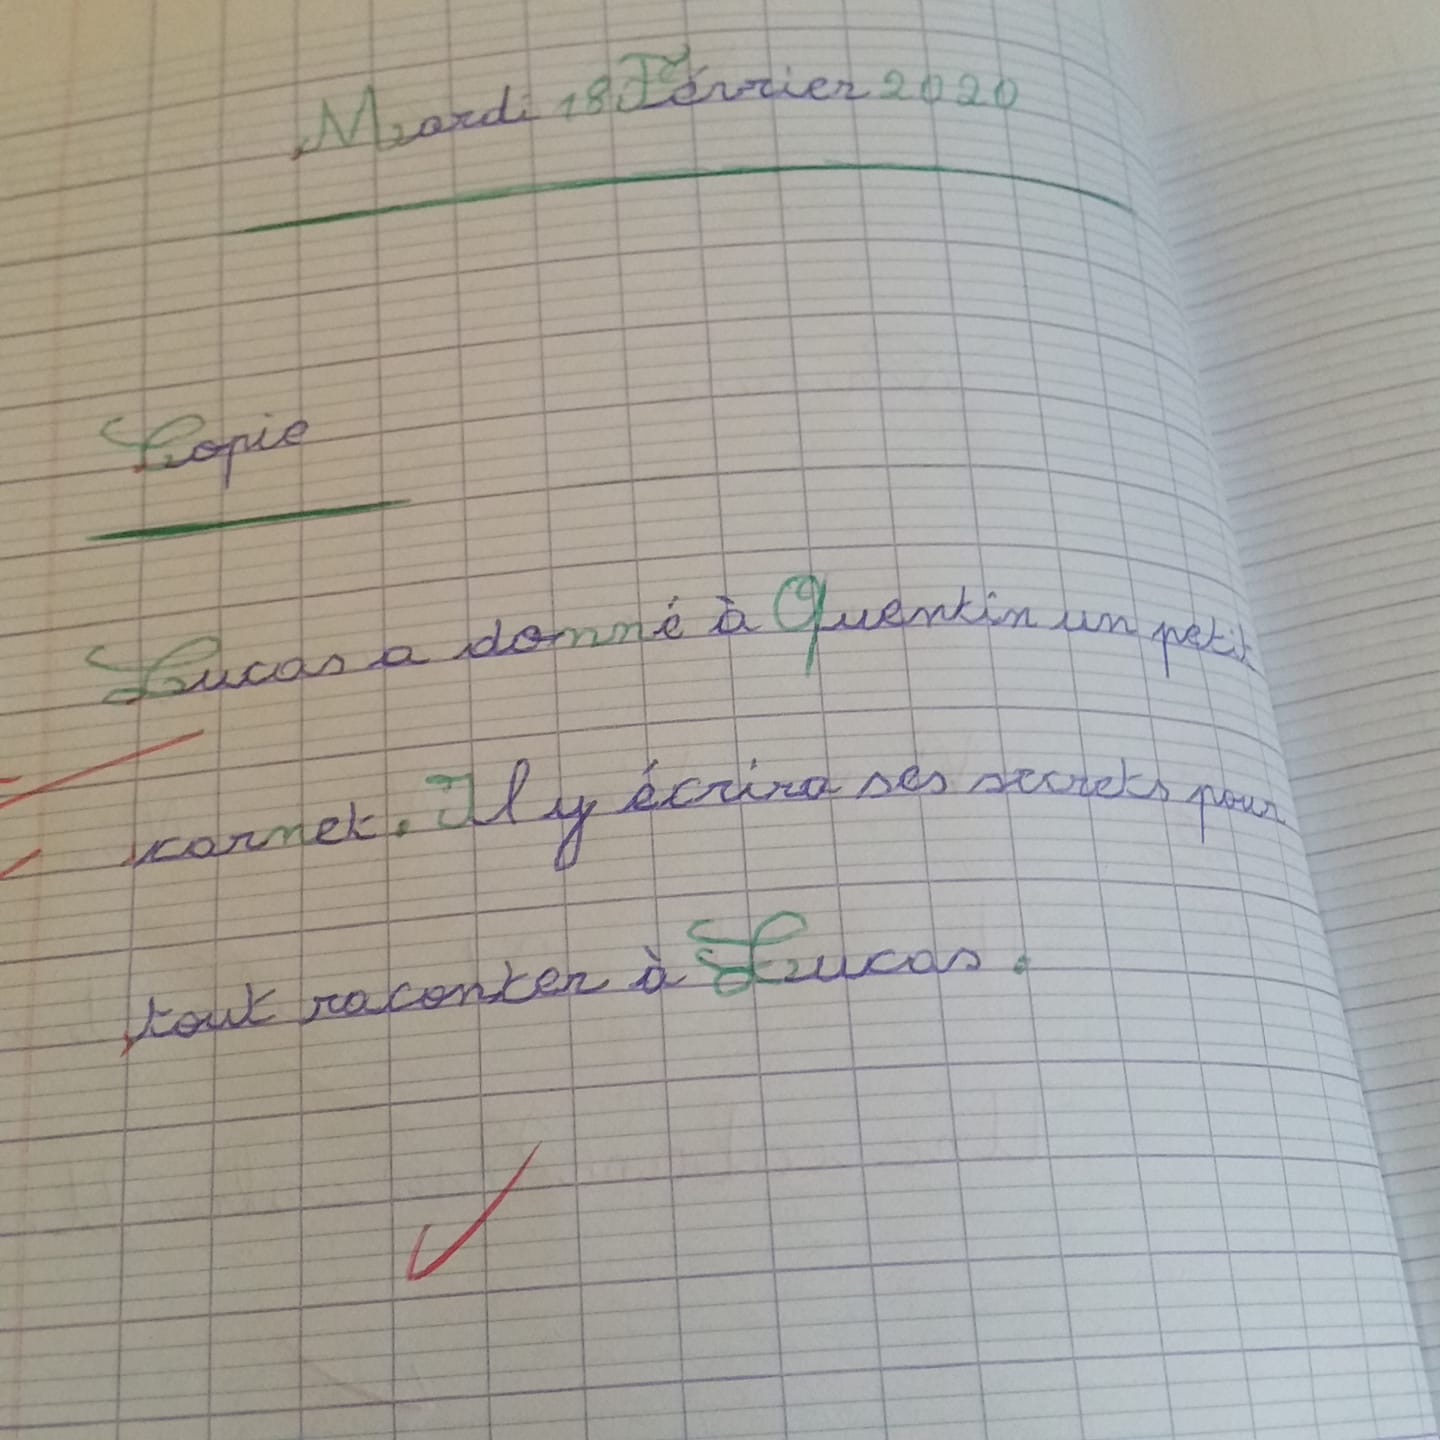 Mardi 18 Février 2020
Copie
Lucas a donné à Quentin un petit
carnet. Il y écrira ses secrets pour
tout raconter à Lucas.